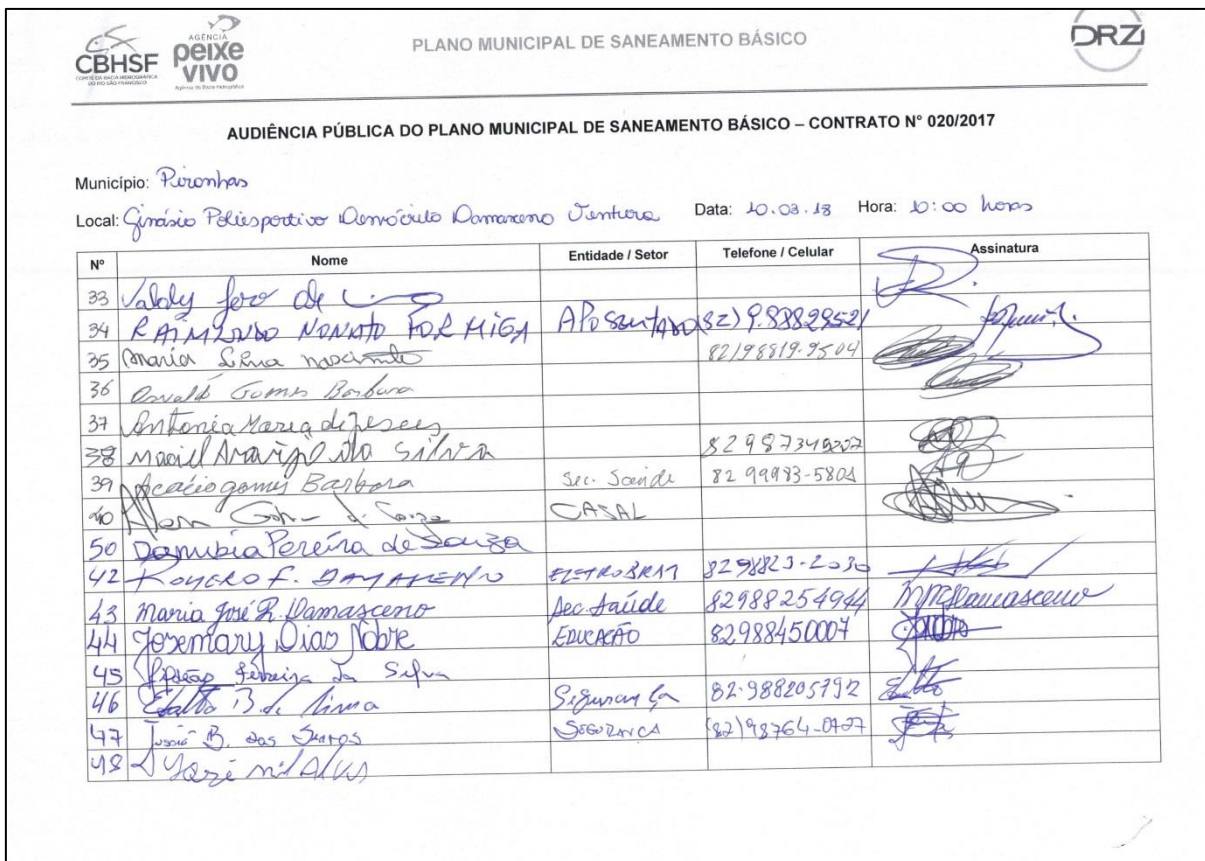 CBHSF
COMITÊ DA BACIA HIDROGRÁFICA
DO RIO SÃO FRANCISCO
AGÊNCIA
peixe
vivo
Agência de Bacia Hidrográfica
PLANO MUNICIPAL DE SANEAMENTO BÁSICO
DRZ
AUDIÊNCIA PÚBLICA DO PLANO MUNICIPAL DE SANEAMENTO BÁSICO – CONTRATO N° 020/2017
Município: Piranhas
Local: Ginásio Poliesportivo Demócrito Damasceno Ventura Data: 10.03.18 Hora: 10:00 horas
Nº Nome Entidade / Setor Telefone / Celular Assinatura
33 de
34 RAIMUNDO NONATO FORMIGA APOSENTADO (82) 9.88829521
35 Maria Lima nascimento 82/98819-9504
36 Osvaldo Gomes Barbosa
37 Antonia Maria de
38 Maciel Araujo da Silva
39 Acacio gomes Barbosa Sec. Saúde 82 99983-5801
40 CASAL
50 Danubia Pereira de Souza
42 F. 82 98823-2030
43 Maria José R. Damasceno Sec. Saúde 82988254944 Damasceno
44 Josemary Dias Nobre EDUCAÇÃO 82988450007
45 Ferreira da Silva
46 B. de Lima Segurança 82-988205792
47 B. dos Santos SEGURANCA
48 José